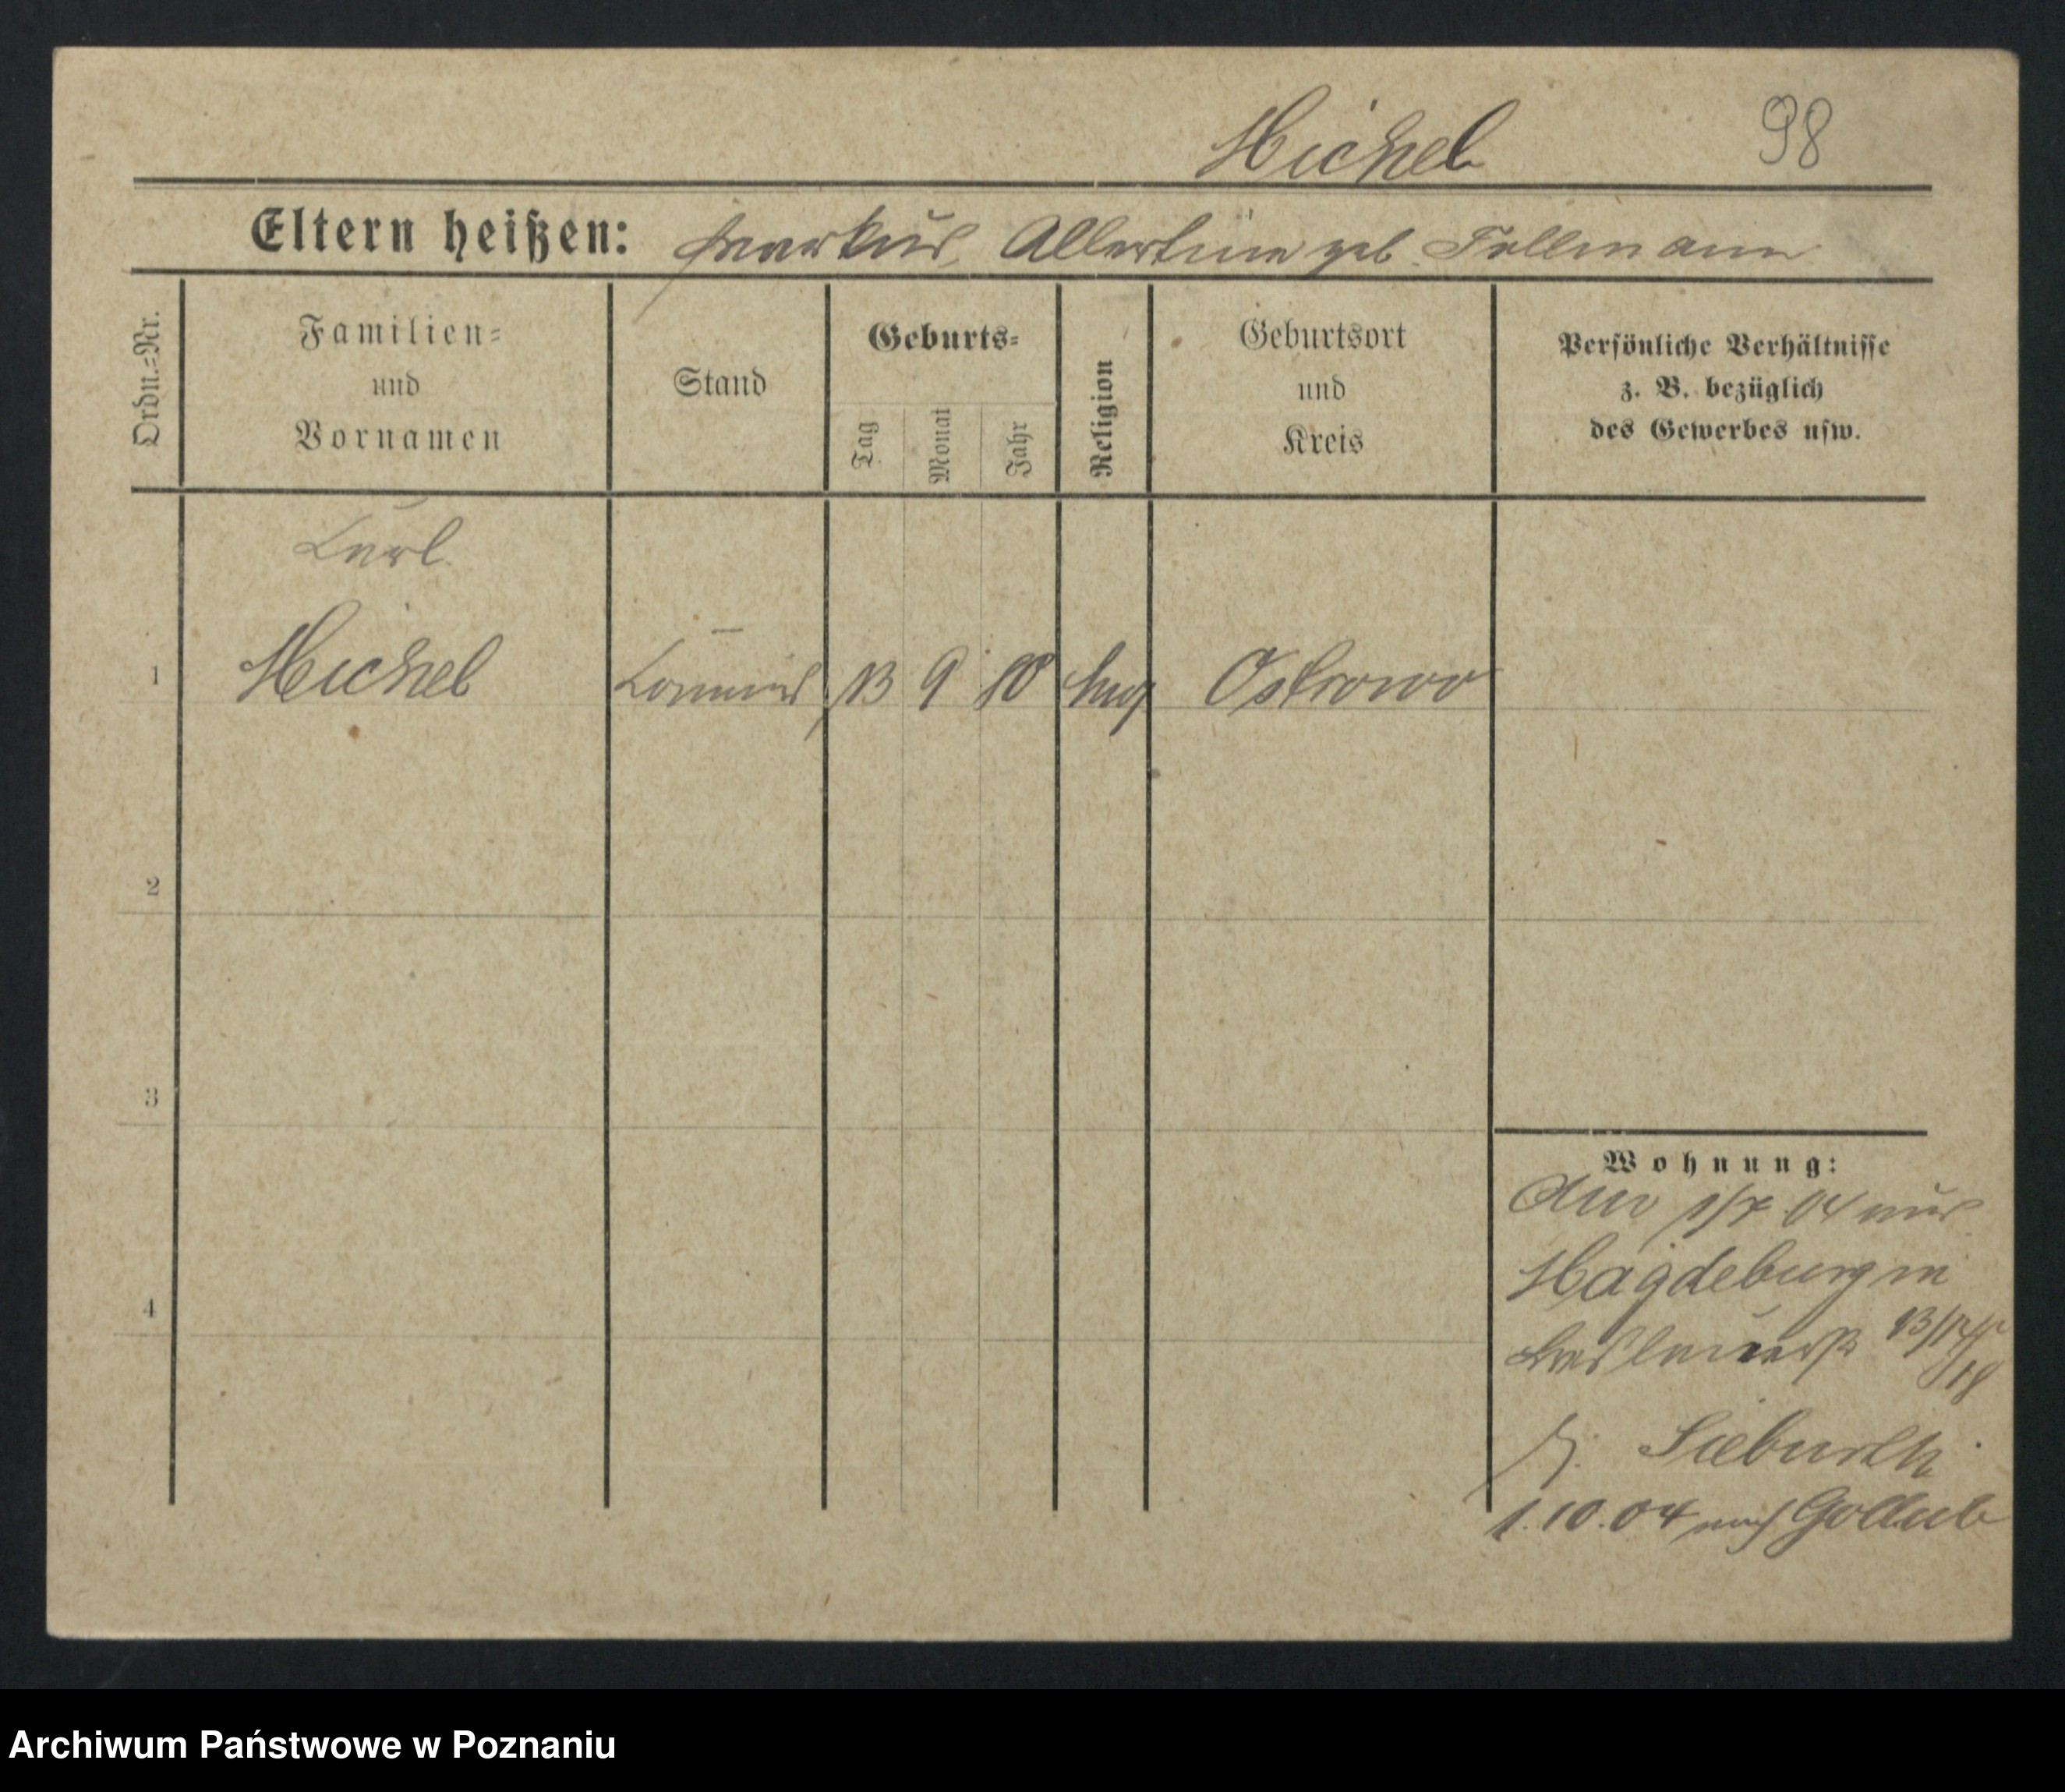 Michel 98
Eltern heißen: Markus, Albertine geb. Fellmann
Ordn.-Nr.
Familien-
und
Vornamen
Stand
Geburts-
Tag
Monat
Jahr
Religion
Geburtsort
und
Kreis
Persönliche Verhältnisse
z. B. bezüglich
des Gewerbes usw.
Kurl
1 Michel Kommis 13 9 80 Ostrowo
2
3
4
Wohnung:
1/7 04 aus
Magdeburg in
13/14
b. Sieburth
1.10.04 nach Gollub
Archiwum Państwowe w Poznaniu